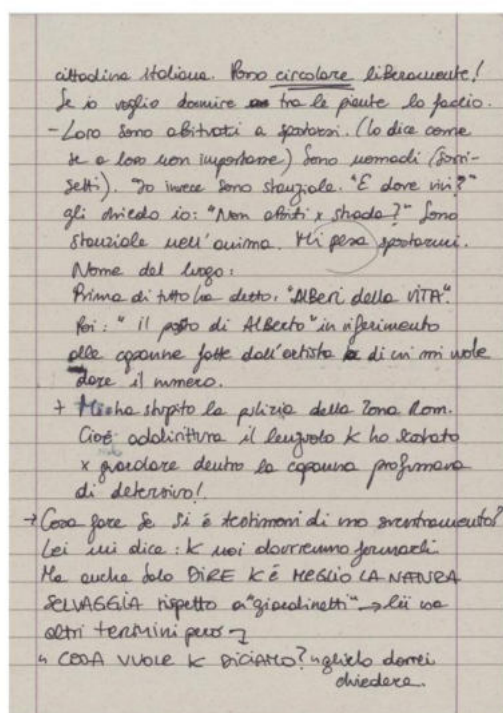 cittadina italiana. Posso circolare liberamente!
Se io voglio dormire tra le piante lo faccio.
- Loro sono abituati a spostarsi. (lo dice come
se a loro non importasse) Sono nomadi (sorri-
setti). "Io invece sono stanziale. "E dove vivi?"
gli chiedo io: "Non abiti x strada?" Sono
stanziale nell'anima. Mi pesa spostarmi.
Nome del luogo:
Prima di tutto ha detto: "ALBERI della VITA".
Poi: "il posto di ALBERTO" in riferimento
alle capanne fatte dall'artista di cui mi vuole
dare il numero.
+ Mi ha stupito la pulizia della zona Rom.
Cioè addirittura il lenzuolo k ho scostato
x guardare dentro la capanna profumava
di detersivo!
→ Cosa fare se si è testimoni di uno sventramento?
Lei mi dice: k noi dovremmo fermarli.
Ma anche solo DIRE K È MEGLIO LA NATURA
SELVAGGIA rispetto a "giardinetti" → lei usa
altri termini però
" COSA VUOLE K DICIAMO? " glielo dovrei
chiedere.